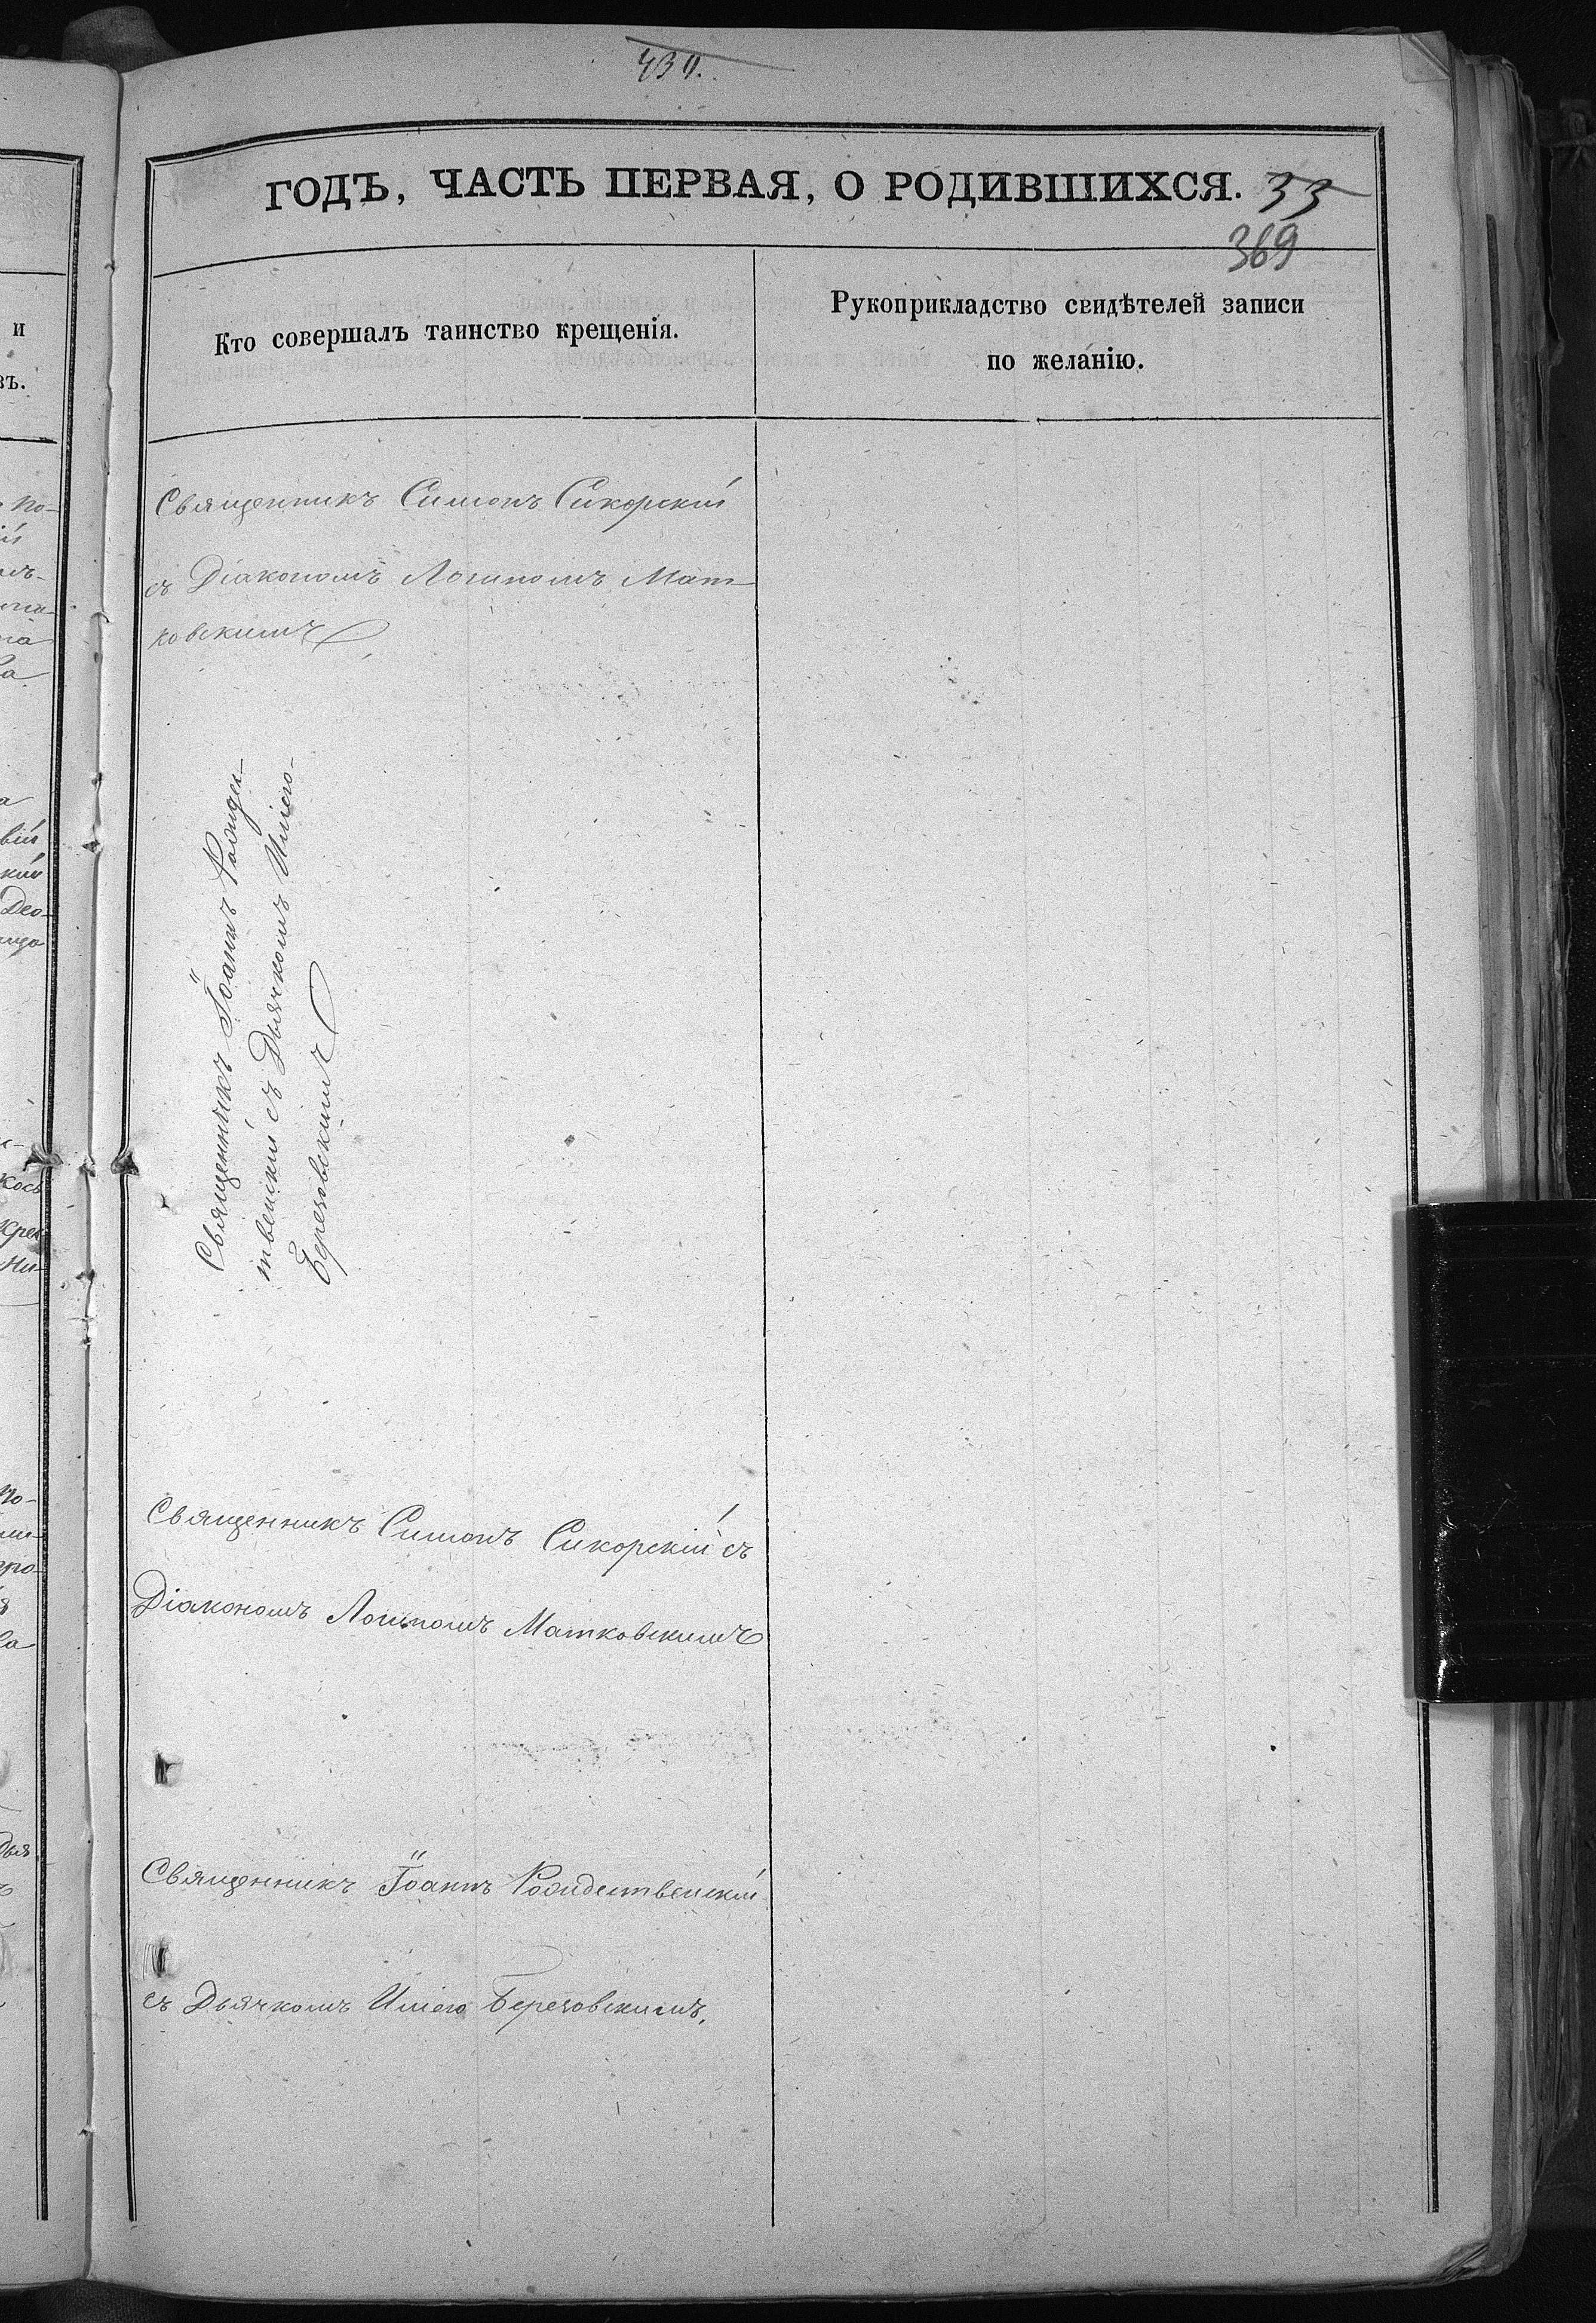 439.
ГОДЪ, ЧАСТЬ ПЕРВАЯ, О РОДИВШИХСЯ. 33
369
Кто совершалъ таинство крещенія.
Рукоприкладство свидѣтелей записи
по желанію.
Священникъ Симонъ Сикорскій
съ Діакономъ Логиномъ Мат-
ковскимъ
Священникъ Іоаннъ Рождес-
твенскій съ Дьячкомъ
Березовскимъ
Священникъ Симонъ Сикорскій съ
Діакономъ Логиномъ Матковскимъ
Священникъ Іоаннъ Рождественскій
съ Дьячкомъ Березовскимъ.